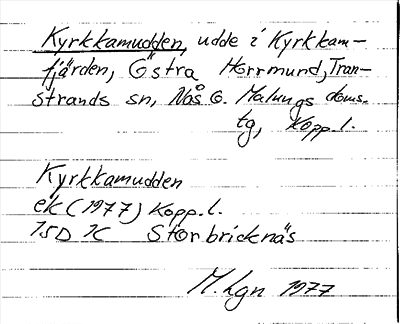 Kyrkkamudden, udde i Kyrkkam-
fjärden, Östra Horrmund, Tran-
strands sn, Nås o. Malungs doms.
tg, Kopp. l.
Kyrkkamudden
ek (1977) Kopp. l.
15D 7C Storbricknäs
M. Lgn 1977